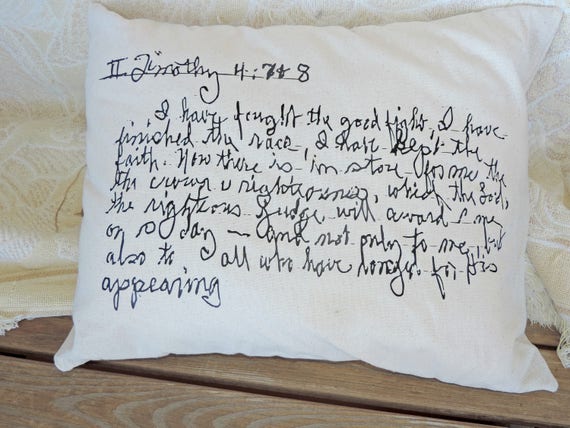 II Timothy 4:7&8
I have fought the good fight, I have
finished the race, I have kept the
faith. Now there is in store for me the
the crown righteousness, which the Lord,
the righteous Judge will award me
on day — and not only to me, but
also to all who have longed for His
appearing